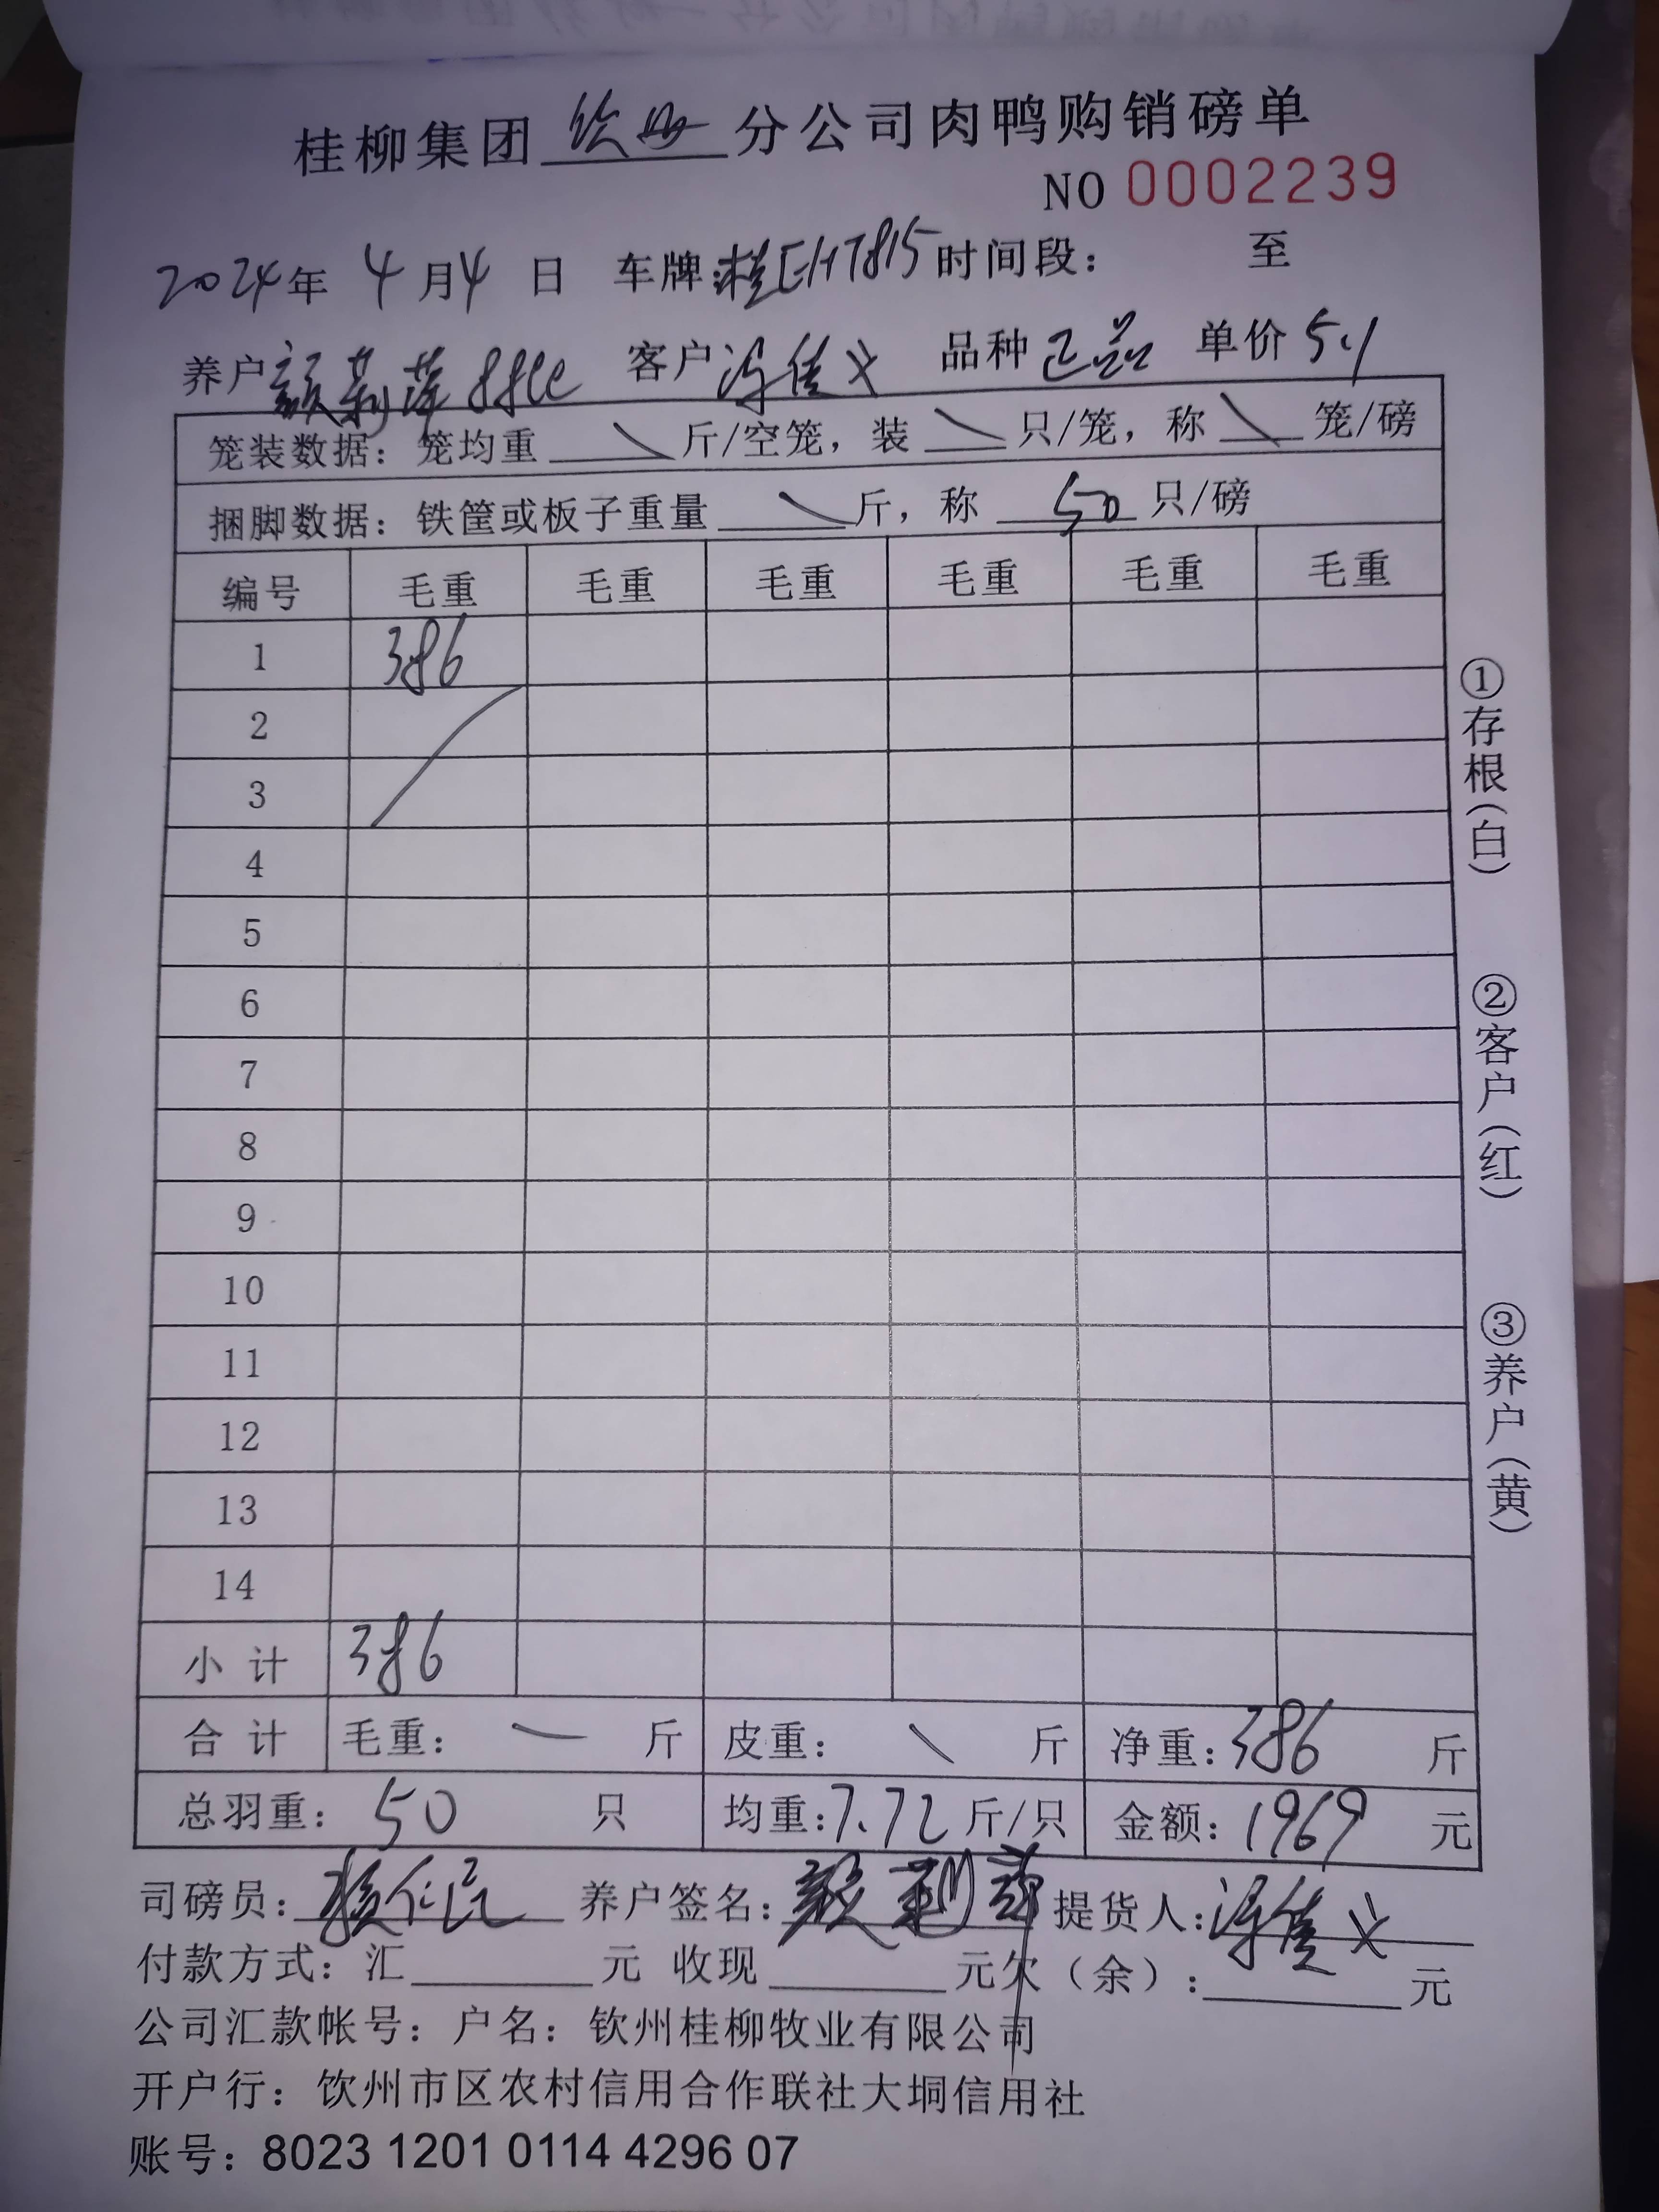 桂柳集团 钦州 分公司肉鸭购销磅单
NO 0002239
2024年 4月4日 车牌:桂EH7815 时间段： 至
养户 颜莉萍 客户 品种 正品 单价 5.1
笼装数据：笼均重 \ 斤/空笼，装 \ 只/笼，称 \ 笼/磅
捆脚数据：铁筐或板子重量 \ 斤，称 50 只/磅
编号 毛重 毛重 毛重 毛重 毛重 毛重
1 386
2
3
4
5
6
7
8
9
10
11
12
13
14
小 计 386
合 计 毛重： — 斤 皮重： \ 斤 净重：386 斤
总羽重： 50 只 均重：7.72 斤/只 金额：1969 元
司磅员： 养户签名：颜莉萍 提货人：
付款方式：汇 元 收现 元欠（余）： 元
公司汇款帐号：户名：钦州桂柳牧业有限公司
开户行：饮州市区农村信用合作联社大垌信用社
账号：8023 1201 0114 4296 07
①存根（白）
②客户（红）
③养户（黄）